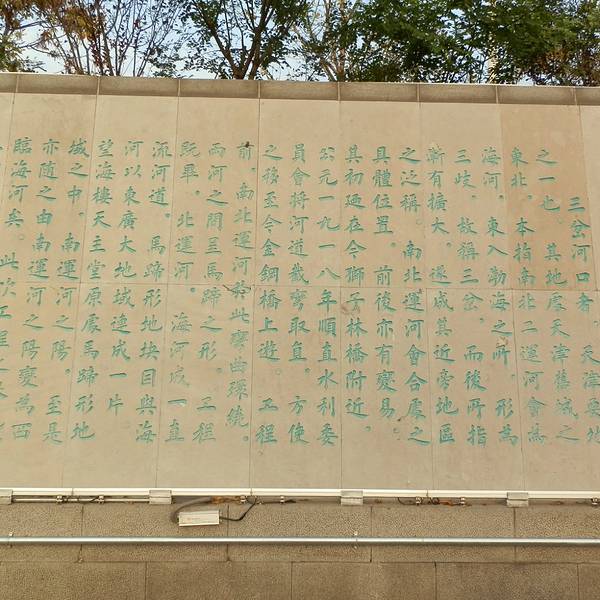 三岔河口者，天津要地
之一也。其地處天津舊城之
東北。本指南北二運河會為
海河，東入渤海之所，形為
三歧，故稱三岔。而後所指
漸有擴大，遂成其近旁地區
之泛稱。南北運河會合處之
具體位置，前後亦有變易。
其初迺在今獅子林橋附近。
公元一九一八年順直水利委
員會將河道裁彎取直，方使
之後至今金鋼橋上遊。工程
前，南北運河於此彎曲環繞。
兩河之間呈馬蹄之形。工程
既畢，北運河、海河成一直
流河道。馬蹄形地块目與海
河以東廣大地域連成一片
望海樓天主堂原處馬蹄形地
域之中，南運河之陽。至是
亦隨之由南運河之陽變為西
臨海河矣。此次工程